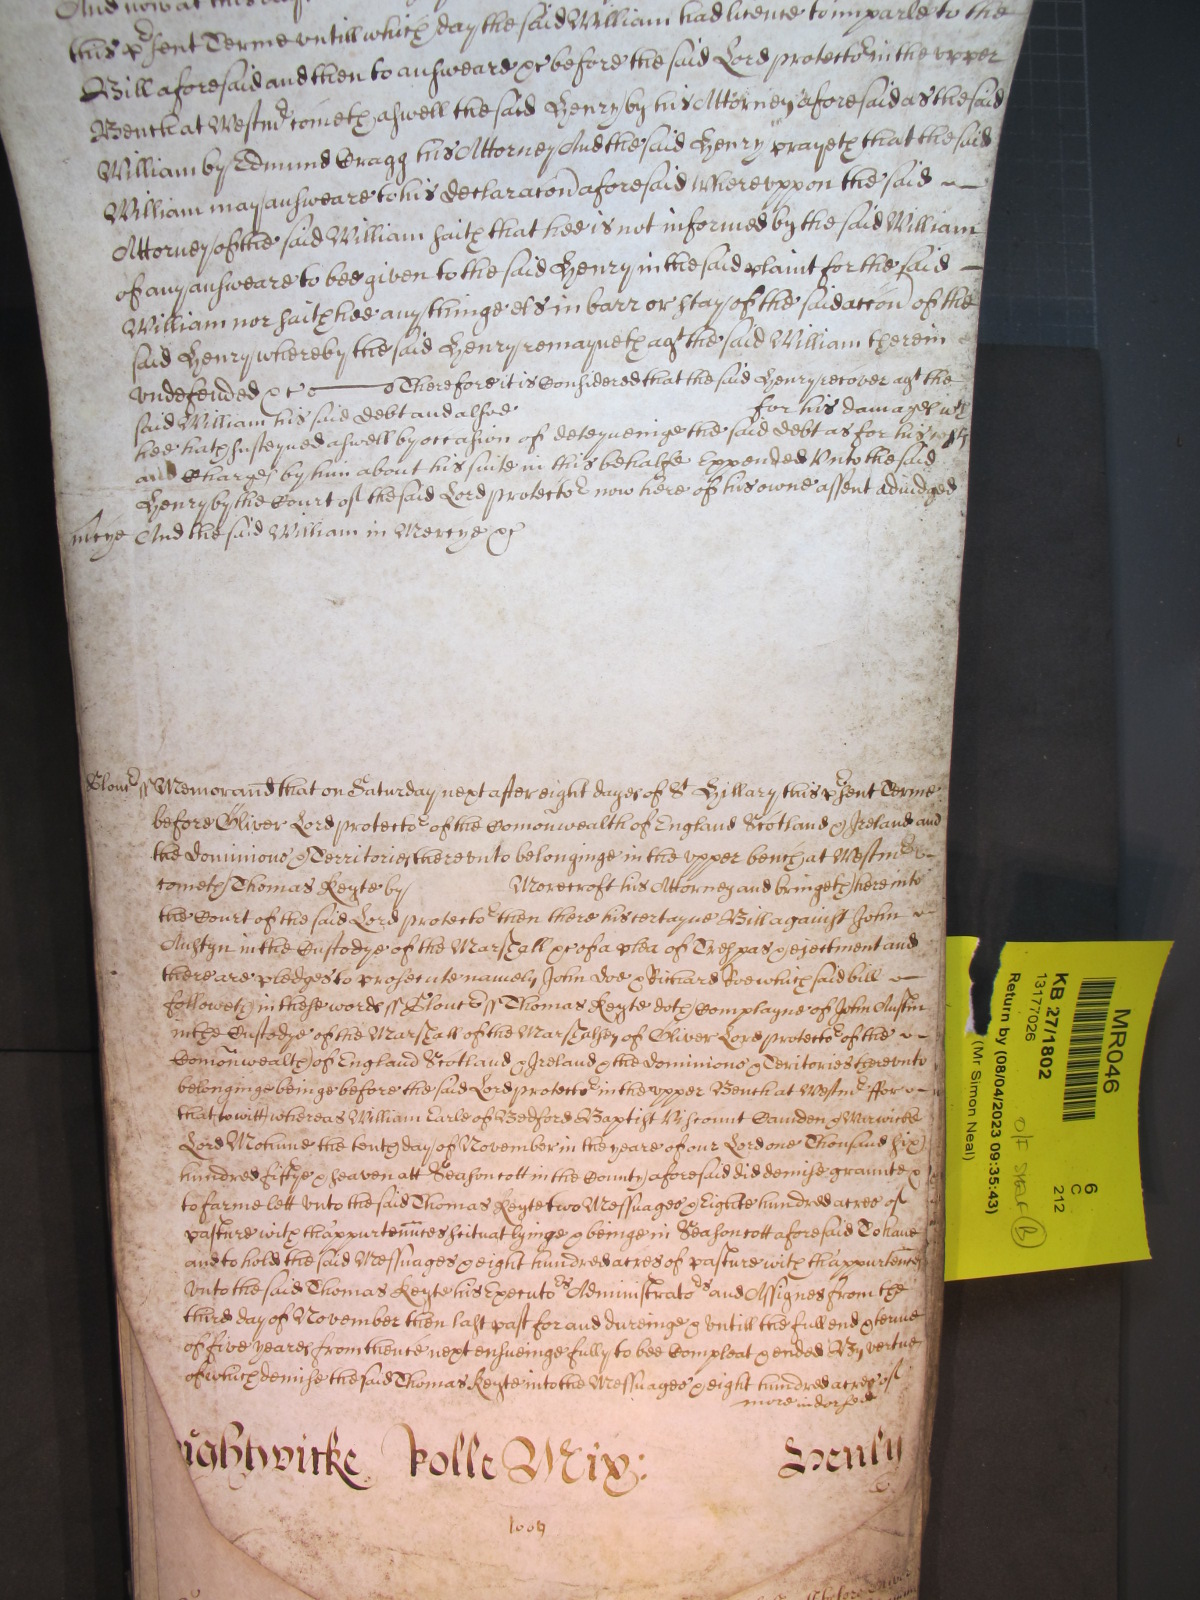 And now at this
this p'sent Terme vntill which day the said William had licence to imparle to the
Bill aforesaid and then to answeare &c before the said Lord protector in the vpper
Bench at Westmr cometh aswell the said Henry by his Attorney aforesaid as the said
William by Edmund Cragg his Attorney And the said Henry prayeth that the said
William may answeare to his declaracon aforesaid Wherevppon the said
Attorney of the said William saith that hee is not informed by the said William
of any answeare to bee given to the said Henry in the said plaint for the said
William nor saith hee any thinge els in barr or stay of the said accon of the
said Henry whereby the said Henry remayneth agt the said William therein
vndefended &c Therefore it is Considered that the said Henry recover agt the
said William his said debt and alsoe for his damages wch
hee hath susteyned aswell by occasion of deteyneinge the said debt as for his costs
and Charges by him about his suite in this behalfe Expended Vnto the said
Henry by the Court of the said Lord protector now here of his owne assent adiudged
mcye And the said William in Mercye &c
Glouc ss Memorand that on Saturday next after eight dayes of St Hillary this p'sent Terme
before Oliver Lord protector of the Comonwealth of England Scotland & Ireland and
the dominions & Territories therevnto belonginge in the vpper bench at Westmr
cometh Thomas Keyte by Morecroft his Attorney and bringeth here into
the Court of the said Lord protector then there his certayne Bill against John
Austyn in the Custodye of the Marshall &c of a plea of Trespas & ejectment and
there are pledges to prosecute namely John Doe & Richard Roe which said bill
followeth in these words ss Glouc ss Thomas Keyte doth Complayne of John Austin
in the Custodye of the Marshall of the Marshalsey of Oliver Lord protector of the
Comonwealth of England Scotland & Ireland & the dominions & Teritories therevnto
belonginge beinge before the said Lord protector in the vpper Bench at Westmr ffor
that to witt whereas William Earle of Bedford Baptist Viscount Camden & Warwicke
Lord Mohune the tenth day of November in the yeare of our Lord one Thousand six
hundred fiftye & seaven att Seasoncott in the County aforesaid did demise graunte &
to farme lett vnto the said Thomas Keyte two Messuages & Eighte hundred acres of
pasture with thappurtennces scituat lyinge & beinge in Seasoncott aforesaid To have
and to hold the said Messuages & eight hundred acres of pasture with thappurtennces
vnto the said Thomas Keyte his Executors Administrators and Assignes from the
third day of November then last past for and dureinge & vntill the full end & terme
of five yeares from thence next ensueinge fully to bee Compleat & ended By vertue
of which demise the said Thomas Keyte into the Messuages & eight hundred acres of
more indorsed
ightwicke Rolle Mix: Henly
1007
MR046
KB 27/1802
13177026
Return by (08/04/2023 09:35:43)
(Mr Simon Neal)
6
C
212
O/F Shelf B